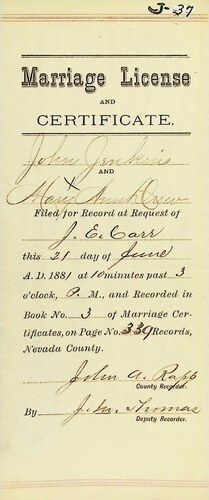 J-37
Marriage License
AND
CERTIFICATE.
John Jenkins
AND
Mary Ann Crew
Filed for Record at Request of
J. E. Carr
this 21 day of June
A. D. 1881 at 10 minutes past 3
o'clock, P. M., and Recorded in
Book No. 3 of Marriage Cer-
tificates, on Page No. 339 Records,
Nevada County.
John A. Rapp
County Recorder.
By J. M. Thomas
Deputy Recorder.